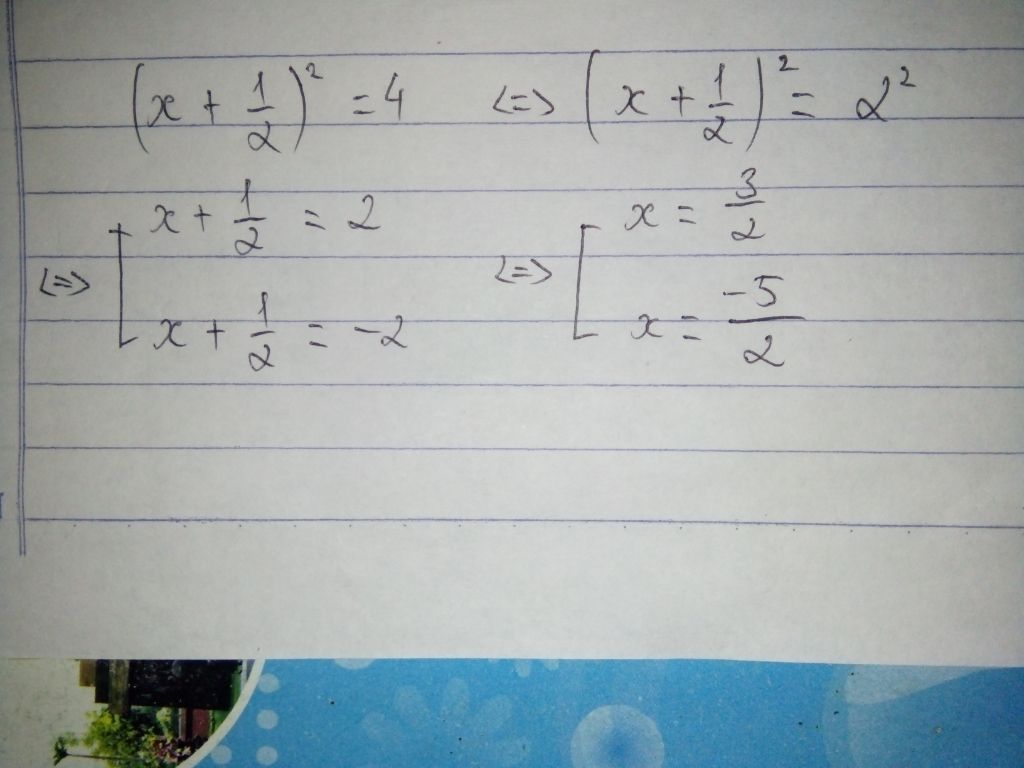 (x + 1/2)² = 4 <=> (x + 1/2)² = 2²
<=> [ x + 1/2 = 2 <=> [ x = 3/2
x + 1/2 = -2 x = -5/2